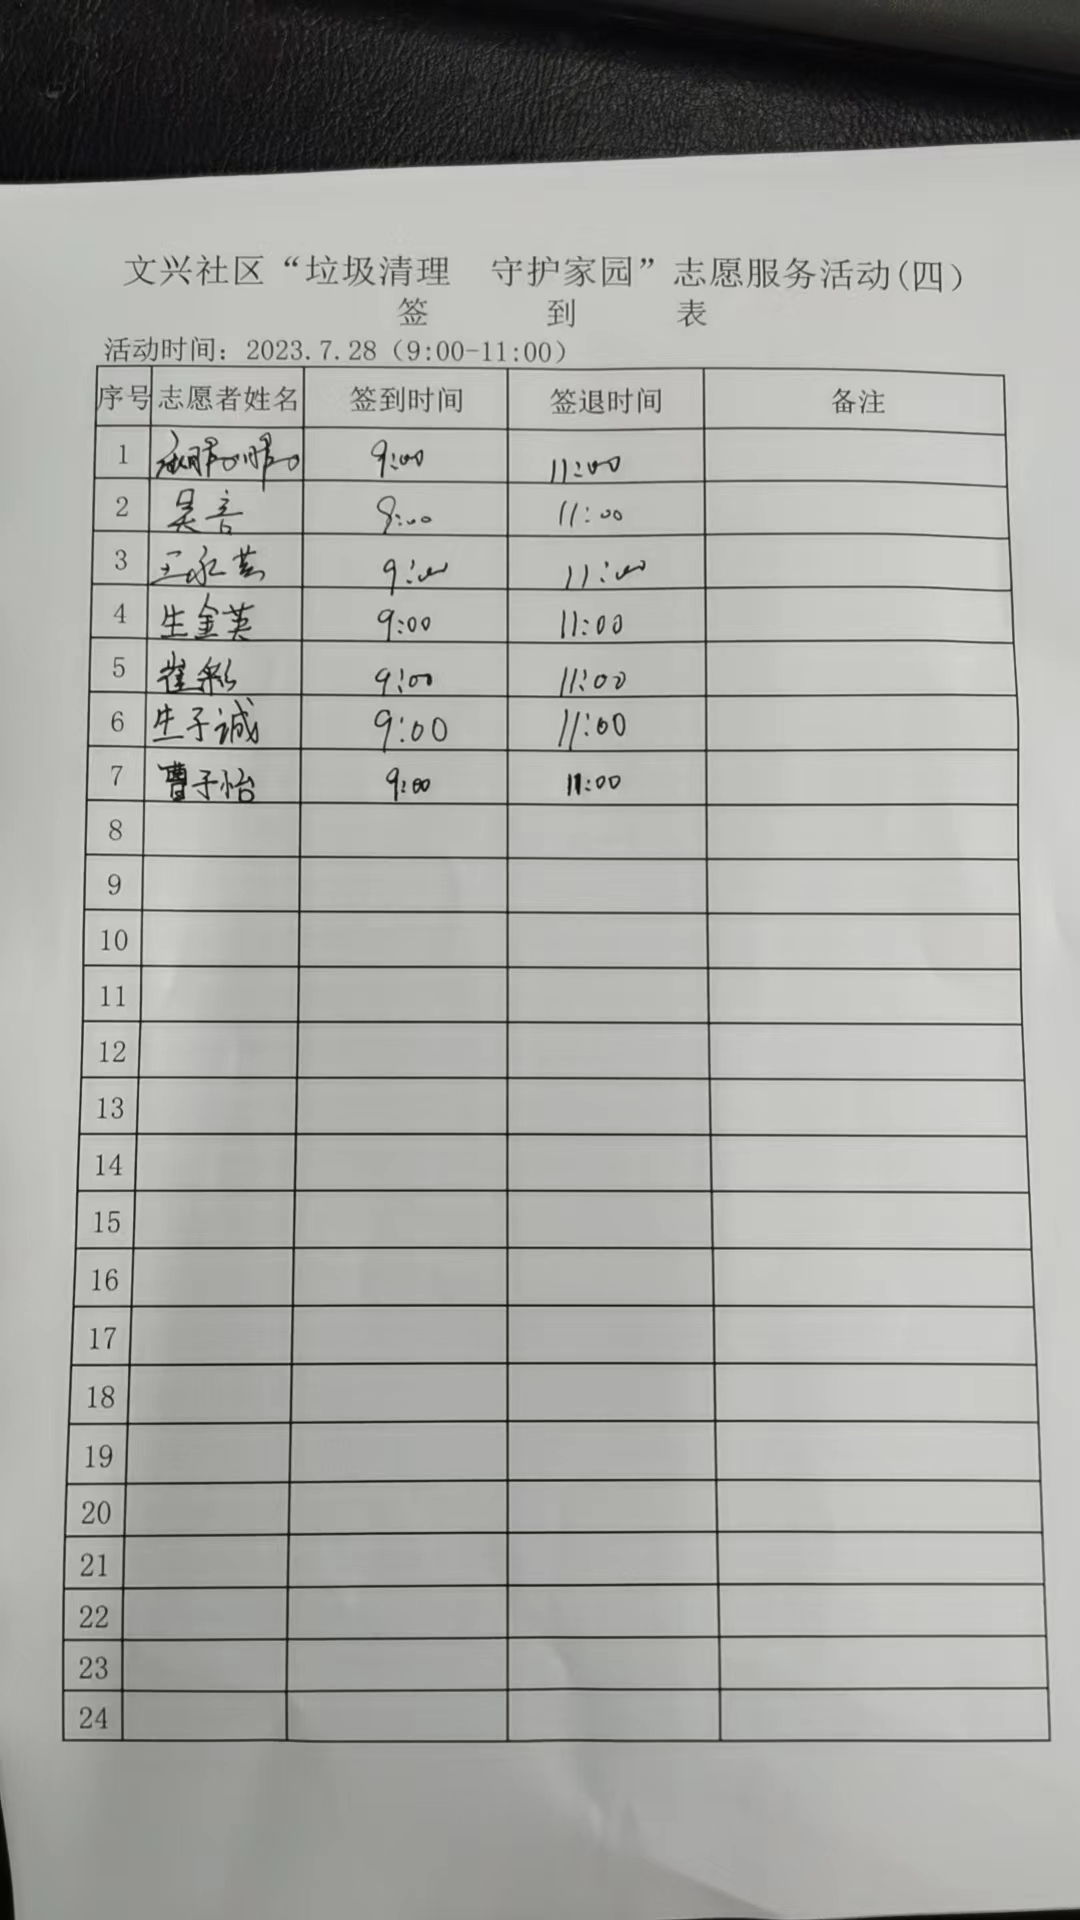 文兴社区“垃圾清理 守护家园”志愿服务活动(四)
签 到 表
活动时间：2023.7.28（9:00-11:00）
序号 志愿者姓名 签到时间 签退时间 备注
1 9:00 11:00
2 吴言 9:00 11:00
3 王永芸 9:00 11:00
4 生金英 9:00 11:00
5 崔彩 9:00 11:00
6 生子诚 9:00 11:00
7 曹子怡 9:00 11:00
8
9
10
11
12
13
14
15
16
17
18
19
20
21
22
23
24